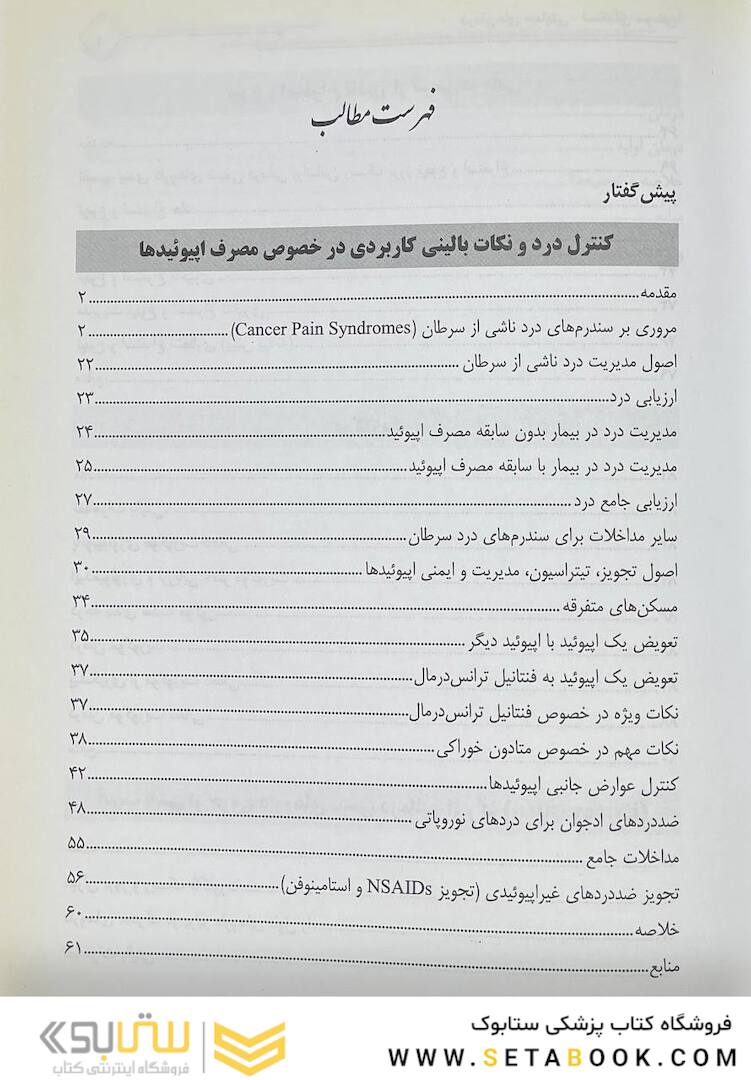 فهرست مطالب
پیش گفتار
کنترل درد و نکات بالینی کاربردی در خصوص مصرف اپیوئیدها
مقدمه ۲
مروری بر سندرم‌های درد ناشی از سرطان (Cancer Pain Syndromes) ۲
اصول مدیریت درد ناشی از سرطان ۲۲
ارزیابی درد ۲۳
مدیریت درد در بیمار بدون سابقه مصرف اپیوئید ۲۴
مدیریت درد در بیمار با سابقه مصرف اپیوئید ۲۵
ارزیابی جامع درد ۲۷
سایر مداخلات برای سندرم‌های درد سرطان ۲۹
اصول تجویز، تیتراسیون، مدیریت و ایمنی اپیوئیدها ۳۰
مسکن‌های متفرقه ۳۴
تعویض یک اپیوئید با اپیوئید دیگر ۳۵
تعویض یک اپیوئید به فنتانیل ترانس‌درمال ۳۷
نکات ویژه در خصوص فنتانیل ترانس‌درمال ۳۷
نکات مهم در خصوص متادون خوراکی ۳۸
کنترل عوارض جانبی اپیوئیدها ۴۲
ضددردهای ادجوان برای دردهای نوروپاتی ۴۸
مداخلات جامع ۵۵
تجویز ضددردهای غیراپیوئیدی (تجویز NSAIDs و استامینوفن) ۵۶
خلاصه ۶۰
منابع ۶۱
فروشگاه کتاب پزشکی ستابوک
WWW.SETABOOK.COM
ستابوک
فروشگاه اینترنتی کتاب